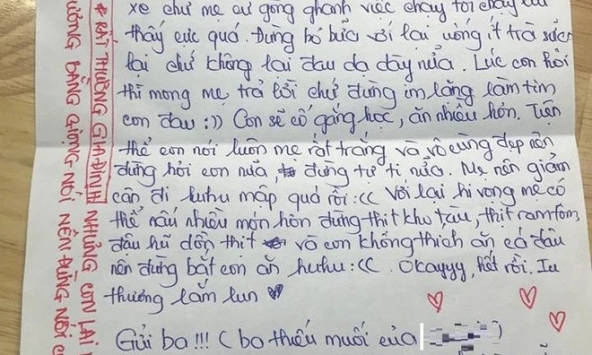 xe chứ mẹ cứ gồng ghánh việc chạy tới chạy lui
thấy cực quá. Đừng bỏ bữa với lại uống ít trà sữa
lại chứ không lại đau dạ dày nữa. Lúc con hỏi
thì mong mẹ trả lời chứ đừng im lặng làm tim
con đau :)) Con sẽ cố gắng học, ăn nhiều hơn. Tiện
thể con nói luôn mẹ rất trắng và vô cùng đẹp nên
đừng hỏi con nữa, đừng tự ti nữa. Mẹ nên giảm
cân đi huhu mập quá rồi :(( Với lại hi vọng mẹ có
thể nấu nhiều món hơn đừng thịt kho tàu, thịt ram tôm,
đậu hũ dồn thịt và con không thích ăn cá đâu
nên đừng bắt con ăn huhu :(( Okayyy, hết rồi. Iu
thương lắm lun
Gửi ba!!! (ba thiếu muối của
# RẤT THƯƠNG GIA ĐÌNH NHƯNG CON LẠI
ƯƠNG BẰNG GIỌNG NÓI NÊN ĐỪNG NÓI C